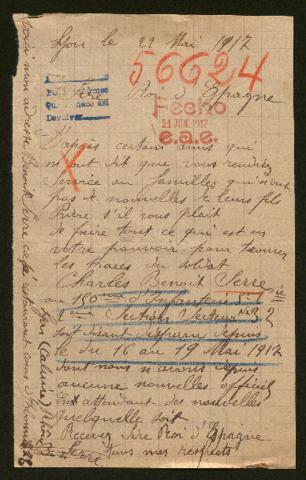 Lyon le 22 Mai 1917
56624
Roi d'Espagne
Fecho
21 JUN. 1917
e.a.e.
D'après certains amis qui
m'ont dit que vous rendiez
service au familles qui n'ont
pas de nouvelles de leurs fils
Prière s'il vous plait
de faire tout ce qui est en
votre pouvoir pour trouver
les traces du soldat
Charles Benoit Serre
au 150 d'Infanterie
Section Secteur
soit disant disparu depuis
le du 16 au 19 Mai 1917
dont nous n'avons depuis
aucune nouvelles officiel
En attendant des nouvelles
quelquelle soit
Recevez Sire Roi d'Espagne
tous mes respects
Serre
voici mon adresse Benoit Serre café restaurant cours
Lyon Rhône